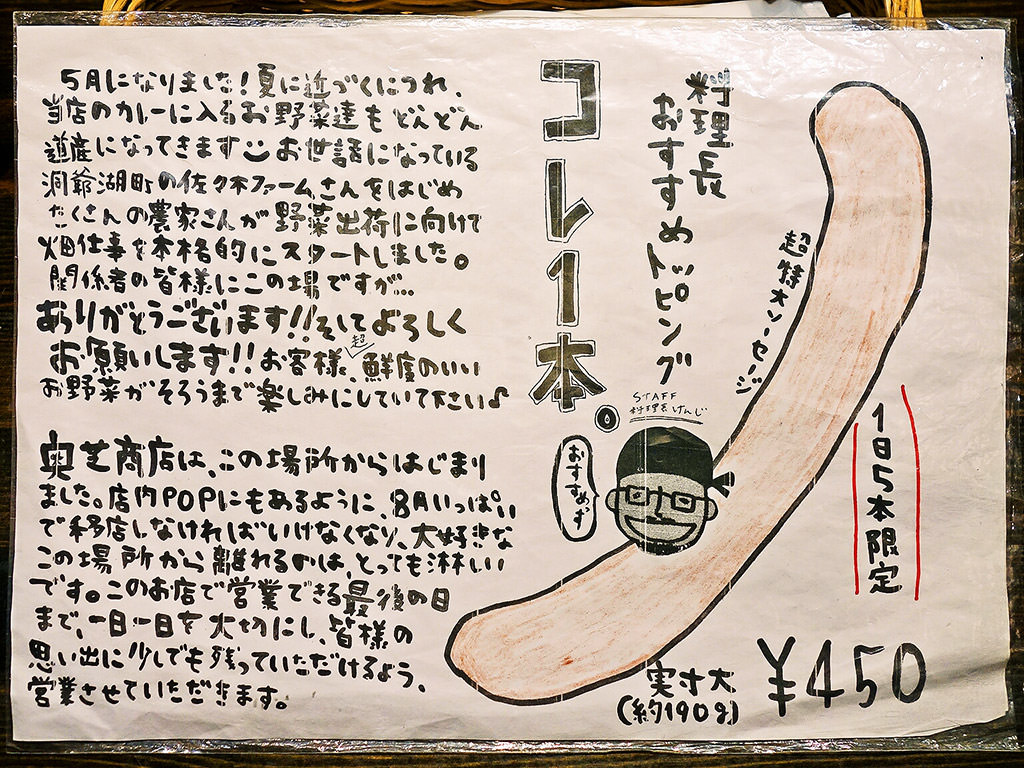 5月になりました！夏に近づくにつれ、
当店のカレーに入るお野菜達もどんどん
道産になってきます お世話になっている
洞爺湖町の佐々木ファームさんをはじめ
たくさんの農家さんが野菜出荷に向けて
畑仕事を本格的にスタートしました。
関係者の皆様にこの場ですが…
ありがとうございます!!そしてよろしく
お願いします!!お客様、超鮮度のいい
お野菜がそろうまで楽しみにしていて下さい♪
奥芝商店は、この場所からはじまり
ました。店内POPにもあるように、8月いっぱい
で移店しなければいけなくなり、大好きな
この場所から離れるのは、とっても淋しい
です。このお店で営業できる最後の日
まで、一日一日を大切にし、皆様の
思い出に少しでも残っていただけるよう、
営業させていただきます。
料理長
おすすめトッピング
コレ1本。
超特大ソーセージ
STAFF
料理長けんじ
おすすめっす
1日5本限定
実寸大
(約190g)
¥450